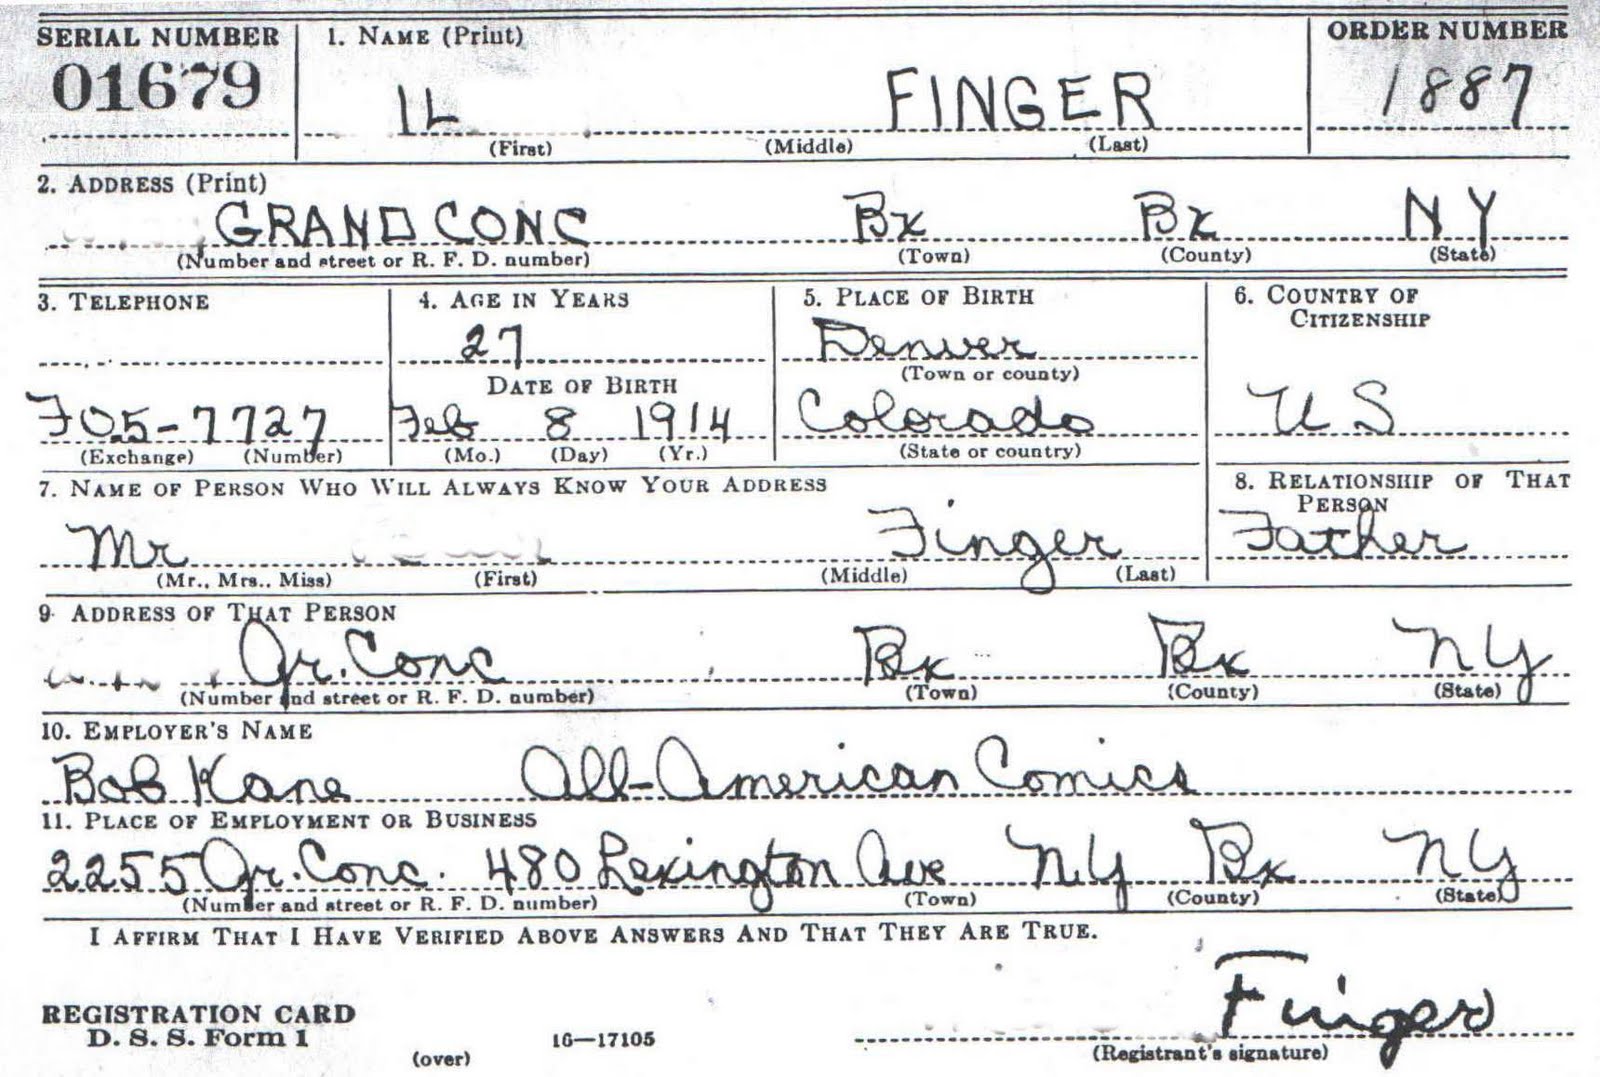 SERIAL NUMBER 1. NAME (Print) ORDER NUMBER
01679 IL FINGER 1887
(First) (Middle) (Last)
2. ADDRESS (Print)
GRAND CONC Bx Bx NY
(Number and street or R. F. D. number) (Town) (County) (State)
3. TELEPHONE 4. AGE IN YEARS 5. PLACE OF BIRTH 6. COUNTRY OF
CITIZENSHIP
27 Denver
DATE OF BIRTH (Town or county)
FO5-7727 Feb 8 1914 Colorado US
(Exchange) (Number) (Mo.) (Day) (Yr.) (State or country)
7. NAME OF PERSON WHO WILL ALWAYS KNOW YOUR ADDRESS 8. RELATIONSHIP OF THAT
PERSON
Mr Finger Father
(Mr., Mrs., Miss) (First) (Middle) (Last)
9. ADDRESS OF THAT PERSON
Gr. Conc Bx Bx NY
(Number and street or R. F. D. number) (Town) (County) (State)
10. EMPLOYER'S NAME
Bob Kane All-American Comics
11. PLACE OF EMPLOYMENT OR BUSINESS
2255 Gr. Conc. 480 Lexington Ave NY Bx NY
(Number and street or R. F. D. number) (Town) (County) (State)
I AFFIRM THAT I HAVE VERIFIED ABOVE ANSWERS AND THAT THEY ARE TRUE.
Finger
REGISTRATION CARD
D. S. S. Form 1 16—17105
(over) (Registrant's signature)